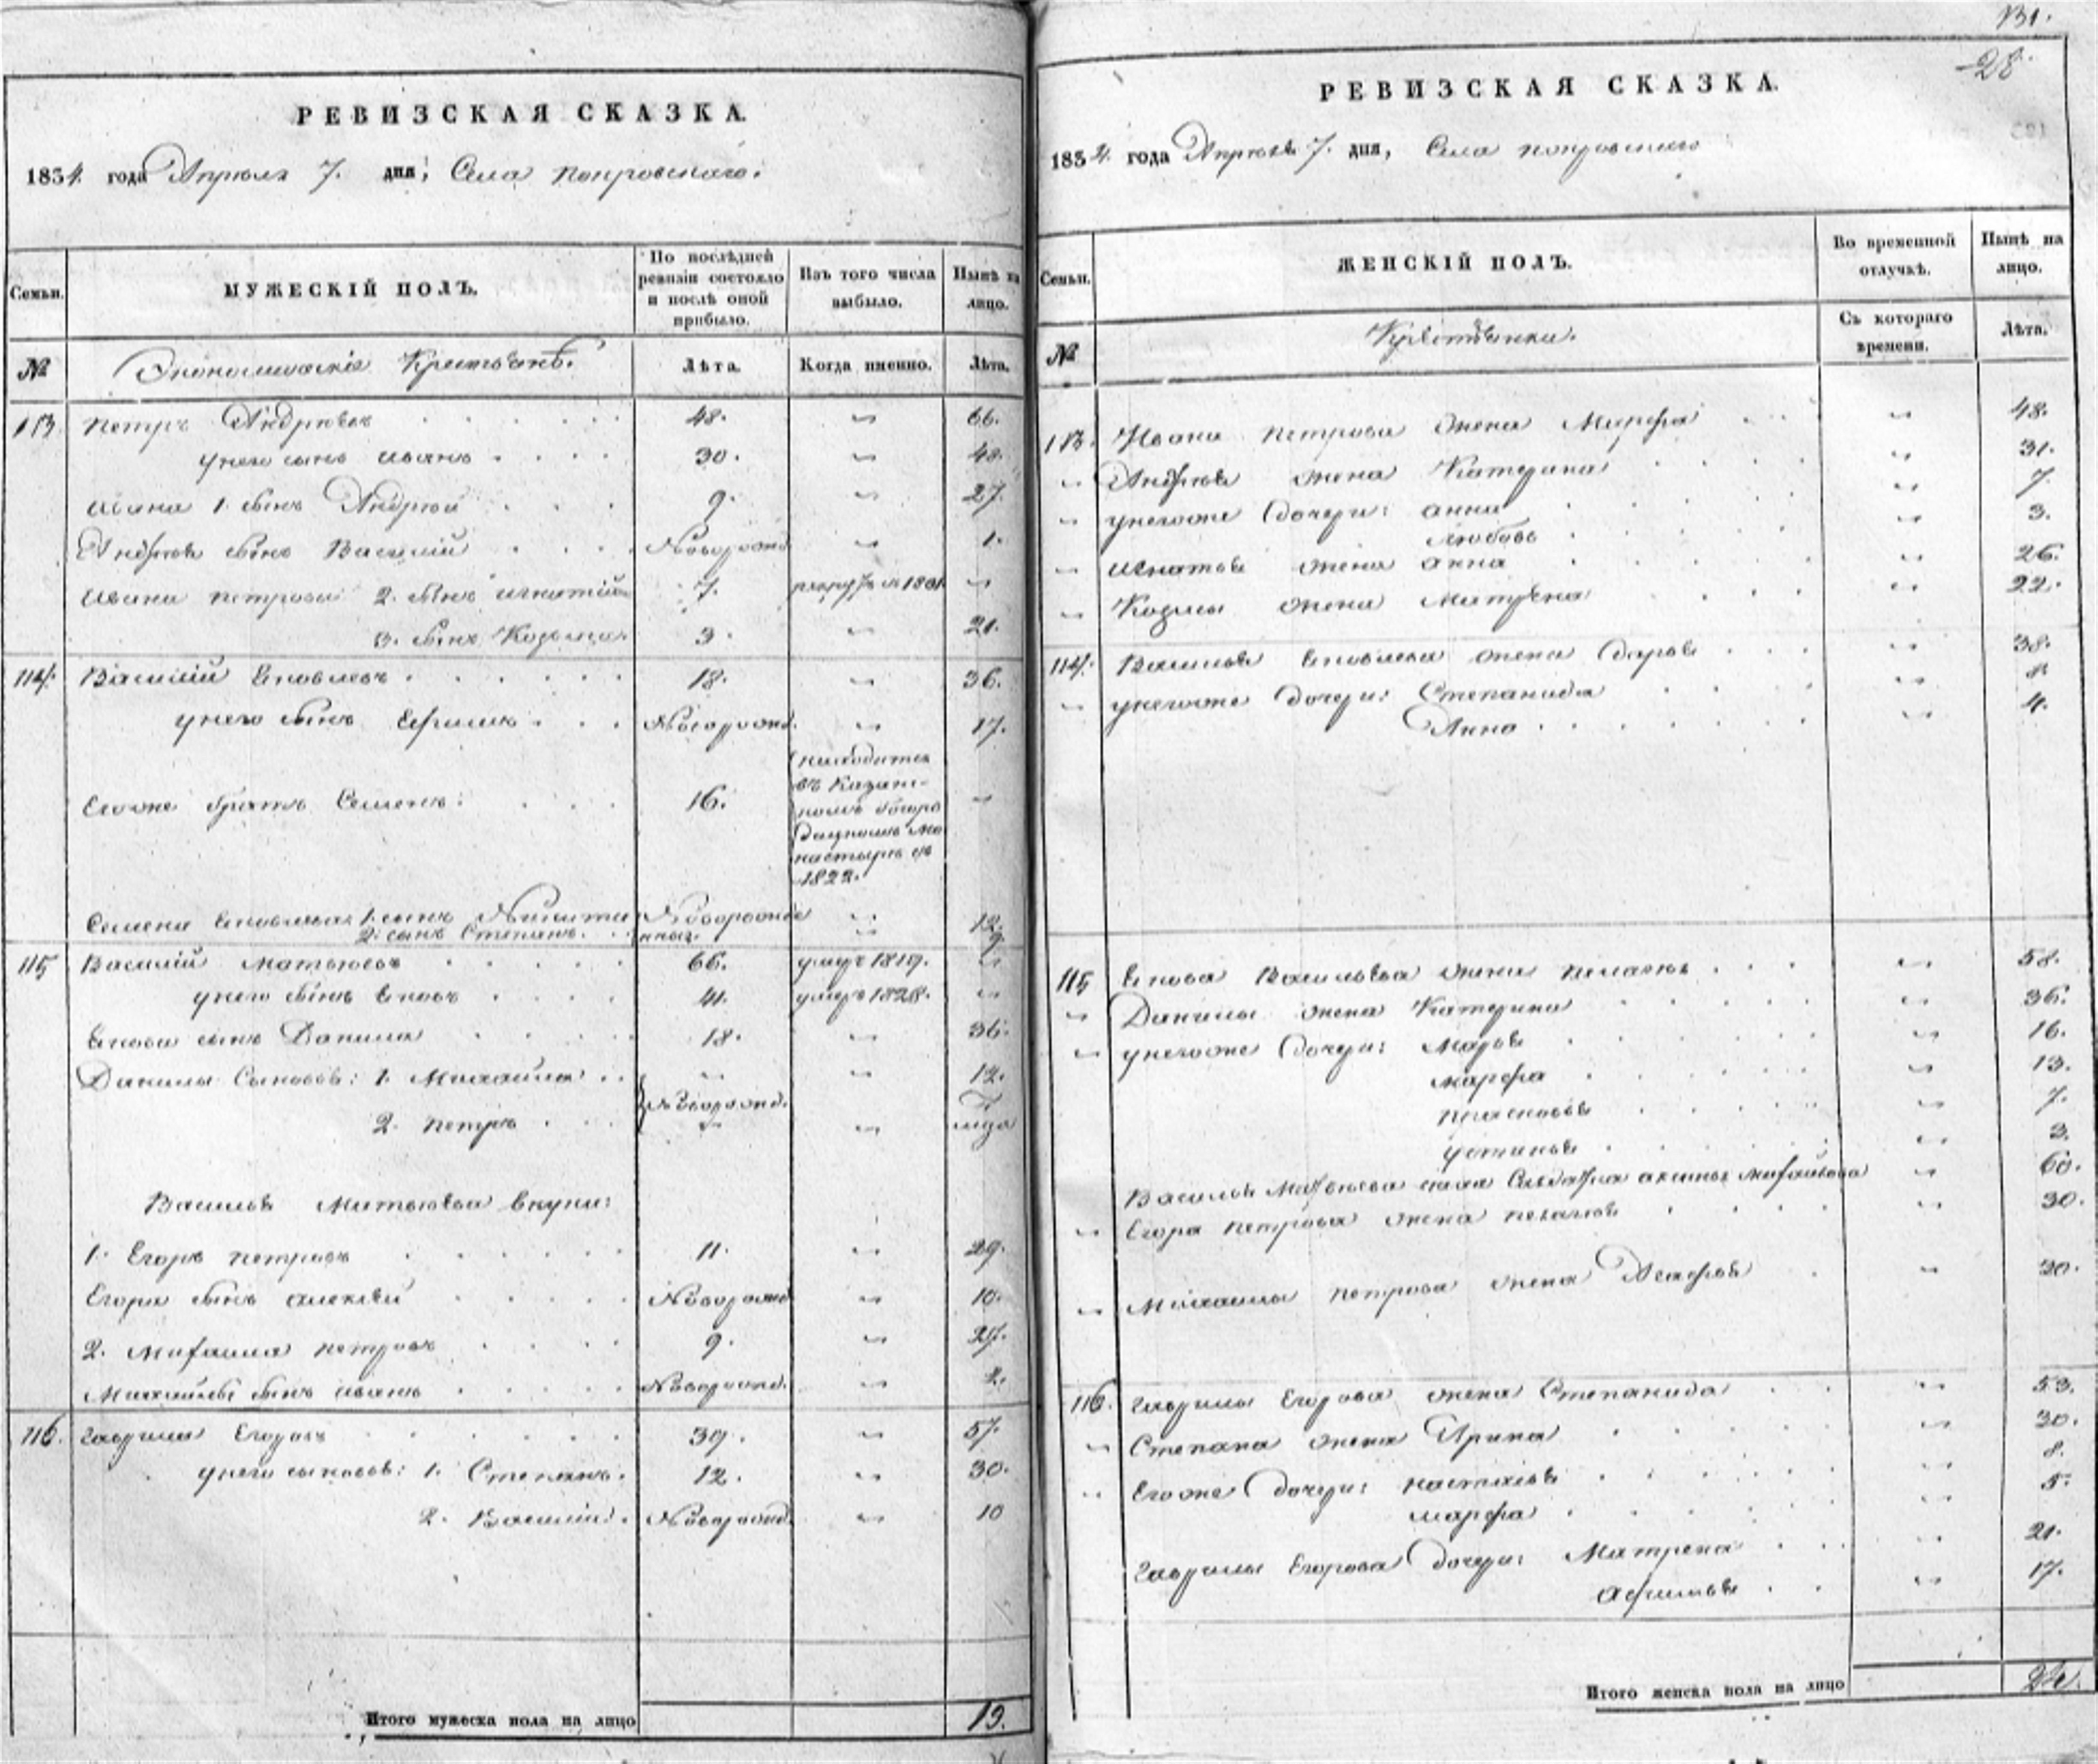 РЕВИЗСКАЯ СКАЗКА.
1834. года Апреля 7. дня, Села покровскаго.
Семьи.
МУЖЕСКІЙ ПОЛЪ.
По послѣдней ревизіи состояло и послѣ оной прибыло.
Изъ того числа выбыло.
Нынѣ на лицо.
№ Экономическіе Крестьянѣ. Лѣта. Когда именно. Лѣта.
113. петръ Андрѣевъ 48. 66.
унего сынъ иванъ 30. 48.
ивана 1. сынъ Андрей 9. 27.
Андрея сынъ Василій Новорожд. 1.
ивана петрова 2. сынъ игнатій 7.
3. сынъ Козьма. 3. 21.
114. Василій яковлевъ 18. 36.
унего сынъ Ефимъ Новорожд. 17.
Егоже братъ Семенъ: 16.
находится
въ Казан-
скомъ богоро
дицкомъ мо
настырѣ съ
1822.
Семена яковлева 1. сынъ Никита Новорожде 12.
2. сынъ Степанъ. нныя. 9.
115 Василій матвѣевъ 66. умеръ 1819.
унего сынъ яковъ 41. умеръ 1828.
якова сынъ Данила 18. 36.
Данилы Сыновья: 1. Михайла 12.
Новорожд.
2. петръ
Василья Матвѣева внуки:
1. Егоръ петровъ 11. 29.
Егора сынъ алексѣй Новорожд. 10.
2. михайла петровъ 9. 27.
Михайлы сынъ иванъ Новорожд. 2.
116. гаврила Егоровъ 39. 57.
унего сыновья: 1. Степанъ. 12. 30.
2. Василій. Новорожд. 10
Итого мужеска пола на лицо 19.
131.
28.
РЕВИЗСКАЯ СКАЗКА.
1834. года Апреля 7. дня, Села покровскаго
Семьи.
ЖЕНСКІЙ ПОЛЪ.
Во временной отлучкѣ.
Нынѣ на лицо.
№ Крестьянки. Съ котораго времени. Лѣта.
113. Ивана петрова жена Марфа 48.
Андрея жена Катерина 31.
унегоже дочери: анна 7.
любовь 3.
игнатья жена анна 26.
Козмы жена матрена 22.
114. Василья яковлева жена Дарья 38.
унегоже дочери: Степанида 8.
Анна 4.
115 якова Васильева жена пелагея 58.
Данилы жена Катерина 36.
унегоже дочери: марья 16.
марфа 13.
прасковья 7.
устинья 3.
60.
Егора петрова жена пелагея 30.
Михайлы петрова жена Агафья 30.
116. гаврилы Егорова жена Степанида 53.
Степана жена Ирина 30.
Егоже дочери: настасья 8.
марфа 5.
гаврилы Егорова дочери: Матрена 21.
афимья 17.
Итого женска пола на лицо 24.